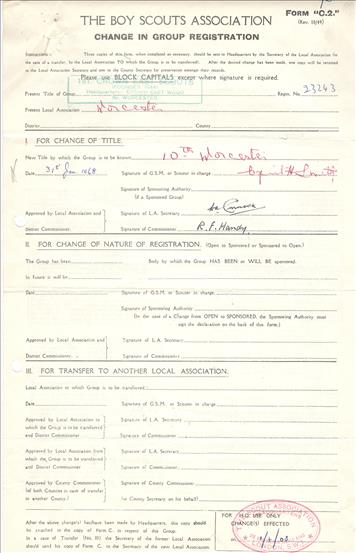 FORM "C.2."
(Rev. 10/49)
THE BOY SCOUTS ASSOCIATION
CHANGE IN GROUP REGISTRATION
Instructions: Three copies of this form, when completed as necessary, should be sent to Headquarters by the Secretary of the Local Association for
the case of a transfer, by the Local Association TO which the Group is to be transferred). After the desired change has been made, one copy will be returned
to the Local Association Secretary and one to the County Secretary for preservation amongst their records.
Please use BLOCK CAPITALS except where signature is required.
Present Title of Group Regtn. No. 23243
Present Local Association Worcester
District County
I. FOR CHANGE OF TITLE.
New Title by which the Group is to be known 10th Worcester
Date 31st Jan 1968 Signature of G.S.M. or Scouter in charge
Signature of Sponsoring Authority
(if a Sponsored Group)
Approved by Local Association and Signature of L.A. Secretary
District Commissioner. Signature of Commissioner R. F. Handy
II. FOR CHANGE OF NATURE OF REGISTRATION. (Open to Sponsored or Sponsored to Open.)
The Group has been Body by which the Group HAS BEEN or WILL BE sponsored.
In future it will be
Date Signature of G.S.M. or Scouter in charge
Signature of Sponsoring Authority
(In the case of a Change from OPEN to SPONSORED, the Sponsoring Authority must
sign the declaration on the back of this form.)
Approved by Local Association and Signature of L.A. Secretary
District Commissioner. Signature of Commissioner
III. FOR TRANSFER TO ANOTHER LOCAL ASSOCIATION.
Local Association to which Group is to be transferred
Date Signature of G.S.M. or Scouter in charge
Approved by Local Association to Signature of L.A. Secretary
which the Group is to be transferred
and District Commissioner Signature of Commissioner
Approved by Local Association from Signature of L.A. Secretary
which the Group is to be transferred
and District Commissioner Signature of Commissioner
Approved by County Commissioner
(of both Counties in case of transfer
to another County.) (or County Secretary on his behalf)
After the above change(s) has/have been made by Headquarters, this copy should
be attached to the copy of Form C. in respect of this Group.
In a case of Transfer (No. III) the Secretary of the former Local Association should
send his copy of Form C. to the Secretary of the new Local Association.
FOR H.Q. USE ONLY
CHANGE(S) EFFECTED